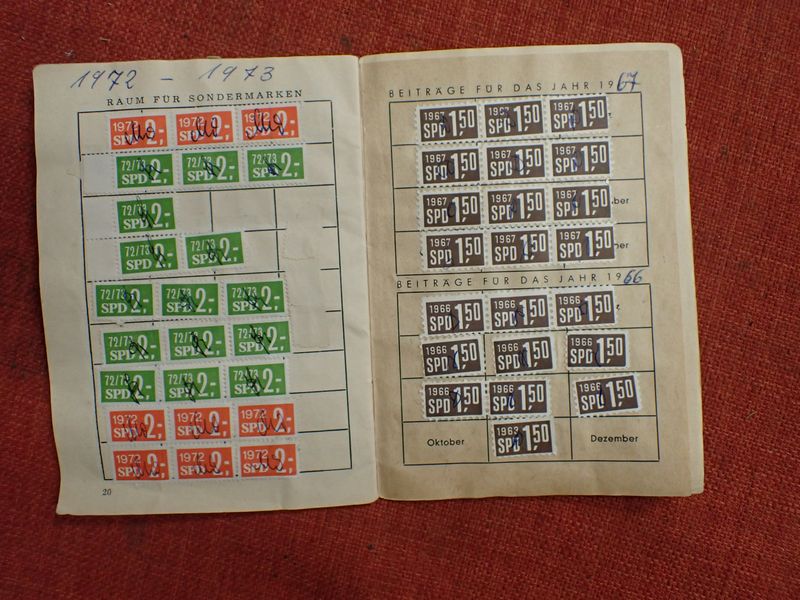 1972 - 1973
RAUM FÜR SONDERMARKEN
1972 SPD 2,- 1972 SPD 2,- 1972 SPD 2,-
72/73 SPD 2,- 72/73 SPD 2,- 72/73 SPD 2,-
72/73 SPD 2,-
72/73 SPD 2,- 72/73 SPD 2,-
72/73 SPD 2,- 72/73 SPD 2,- 72/73 SPD 2,-
72/73 SPD 2,- 72/73 SPD 2,- 72/73 SPD 2,-
72/73 SPD 2,- 72/73 SPD 2,- 72/73 SPD 2,-
1972 SPD 2,- 1972 SPD 2,- 1972 SPD 2,-
1972 SPD 2,- 1972 SPD 2,- 1972 SPD 2,-
20
BEITRÄGE FÜR DAS JAHR 1967
1967 SPD 1,50 1967 SPD 1,50 1967 SPD 1,50
1967 SPD 1,50 1967 SPD 1,50 1967 SPD 1,50
1967 SPD 1,50 1967 SPD 1,50 1967 SPD 1,50 ber
1967 SPD 1,50 1967 SPD 1,50 1967 SPD 1,50 ber
BEITRÄGE FÜR DAS JAHR 1966
1966 SPD 1,50 1966 SPD 1,50 1966 SPD 1,50
1966 SPD 1,50 1966 SPD 1,50 1966 SPD 1,50
1966 SPD 1,50 1966 SPD 1,50 1966 SPD 1,50
Oktober 1963 SPD 1,50 Dezember